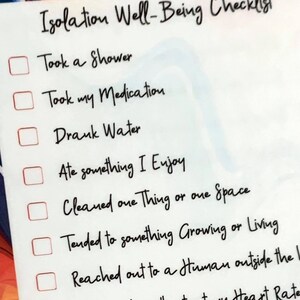 Isolation Well-Being Checklist
Took a Shower
Took my Medication
Drank Water
Ate something I Enjoy
Cleaned one Thing or one Space
Tended to something Growing or Living
Reached out to a Human outside the
Heart Rate